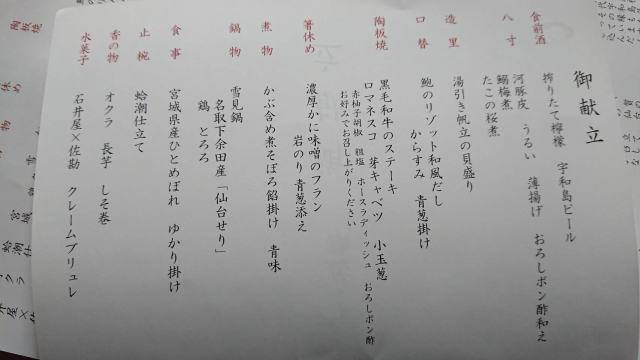 御献立
食前酒 搾りたて檸檬 宇和島ビール
八寸 河豚皮 うるい 薄揚げ おろしポン酢和え
鰯梅煮
たこの桜煮
造里 湯引き帆立の貝盛り
口替 鮑のリゾット和風だし
からすみ 青葱掛け
陶板焼 黒毛和牛のステーキ
ロマネスコ 芽キャベツ 小玉葱
赤柚子胡椒 粗塩 ホースラディッシュ おろしポン酢
お好みでお召し上がりください
箸休め 濃厚かに味噌のフラン
岩のり 青葱添え
煮物 かぶ含め煮そぼろ餡掛け 青味
鍋物 雪見鍋
名取下余田産「仙台せり」
鶏 とろろ
食事 宮城県産ひとめぼれ ゆかり掛け
止椀 蛤潮仕立て
香の物 オクラ 長芋 しそ巻
水菓子 石井屋×佐勘 クレームブリュレ